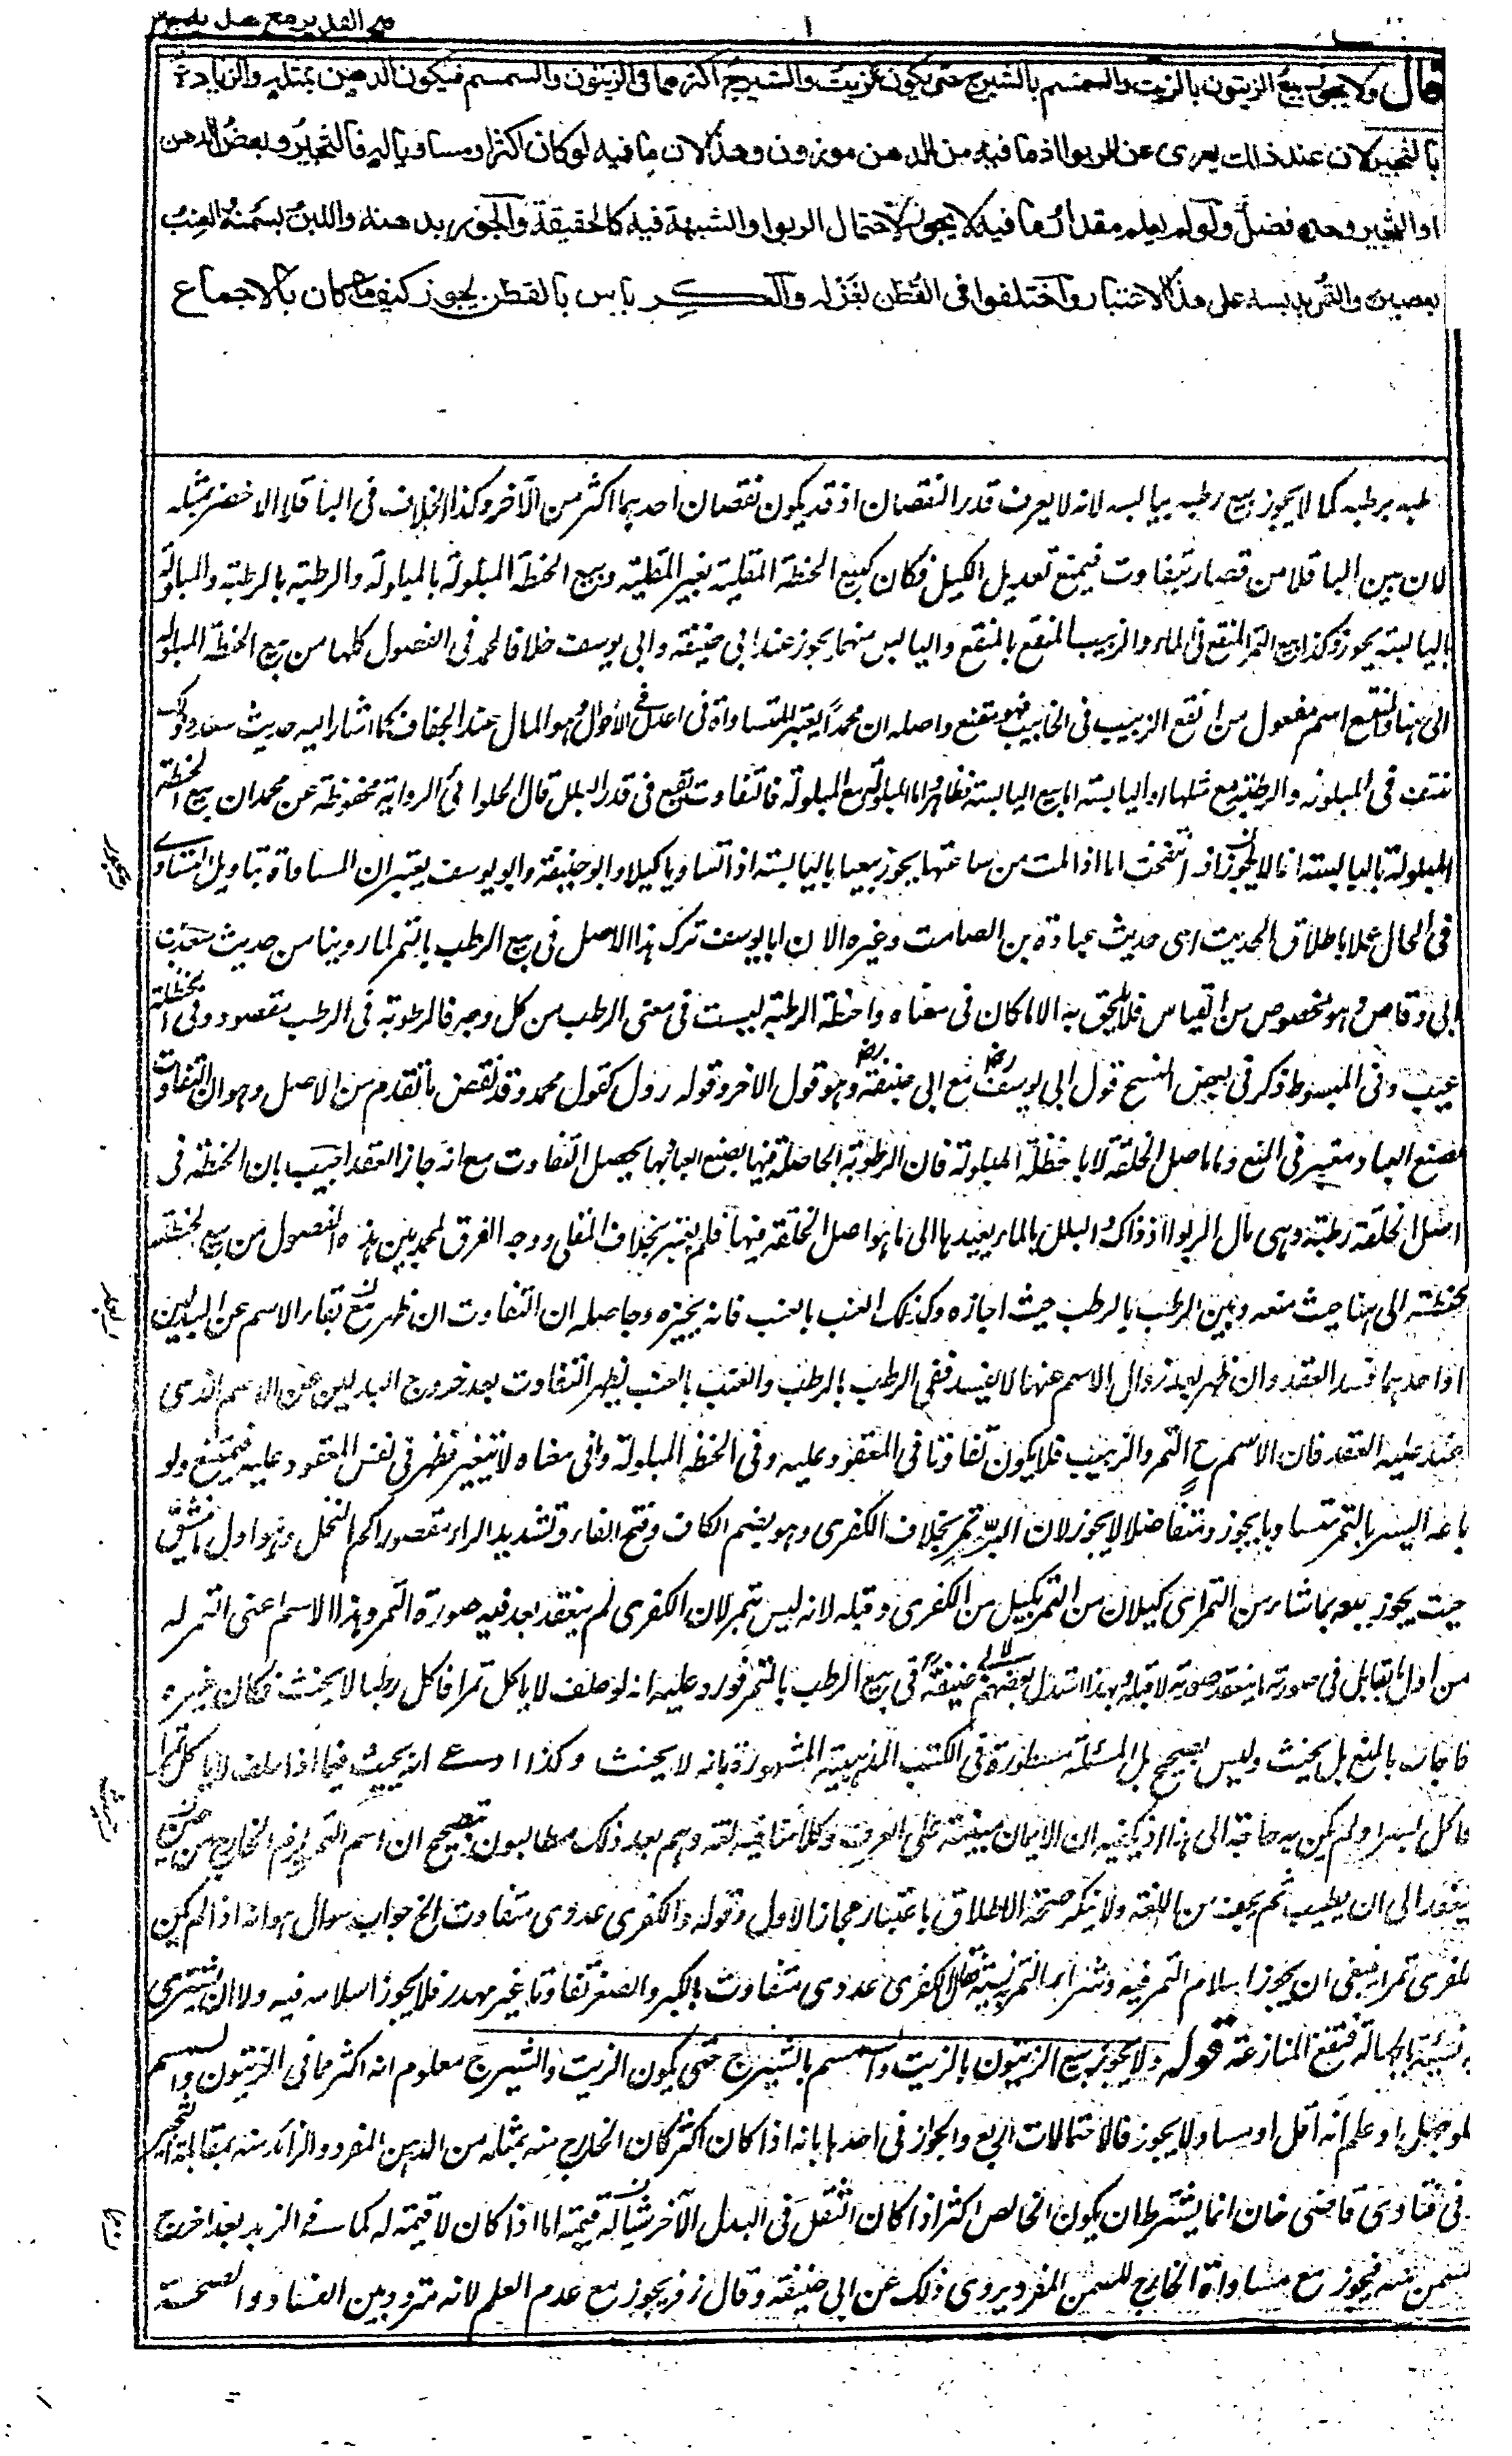 فتح القدير مع هدايه
قال ولا يجوز بيع الزيتون بالزيت والسمسم بالشيرج حتى يكون الزيت والشيرج اكثر مما فى الزيتون والسمسم فيكون الدهن بمثله والزيادة
بالثجير لان عند ذلك يعرى عن الربوا اذ ما فيه من الدهن موزون وهذا لان ما فيه لو كان اكثر او مساويا له فالثجير وبعض الدهن
او الثجير وحده فضل ولو لم يعلم مقدار ما فيه لا يجوز لاحتمال الربوا والشبهة فيه كالحقيقة والجوز بدهنه واللبن بسمنه والعنب
بعصيره والتمر بدبسه على هذا الاعتبار واختلفوا فى القطن بغزله والكرباس بالقطن يجوز كيف ما كان بالاجماع
طبه برطبه كما لا يجوز بيع رطبه بيابسه لانه لا يعرف قدر النقصان اذ قد يكون نقصان احدهما اكثر من الآخر وكذا الخلاف فى الباقلا الاخضر بمثله
لان بين الباقلا من قصار يتفاوت فيمنع تعديل الكيل فكان كبيع الحنطة المقلية بغير المقلية وبيع الحنطة المبلولة بالمبلولة والرطبة بالرطبة والمبلولة
باليابسة يجوز وكذا بيع التمر المنقع فى الماء والزبيب المنقع بالمنقع واليابس منهما يجوز عند ابى حنيفة وابى يوسف خلافا لمحمد فى الفصول كلها من بيع الحنطة المبلولة
الى هنا والمنقع اسم مفعول من انقع الزبيب فى الخابية فهو منقع واصله ان محمدا يعتبر المساواة فى اعدل الاحوال وهو المال عند الجفاف كما اشار اليه حديث سعد وذلك
منتف فى المبلولة والرطبة مع مثلها واليابسة اما بيع اليابسة فظاهر واما المبلولة مع المبلولة فالتفاوت يقع فى قدر البلل قال الحلوائى الرواية محفوظة عن محمد ان بيع الحنطة
المبلولة باليابسة انما لا يجوز اذا انتفخت اما اذا بلت من ساعتها يجوز بيعها باليابسة اذا تساويا كيلا وابو حنيفة وابو يوسف يعتبران المساواة بتاويل التساوى
فى الحال عملا باطلاق الحديث اى حديث عبادة بن الصامت وغيره الا ان ابا يوسف ترك هذا الاصل فى بيع الرطب بالتمر لما روينا من حديث سعد بن
ابى وقاص وهو مخصوص من القياس فلا يلحق به الا ما كان فى معناه والحنطة الرطبة ليست فى معنى الرطب من كل وجه فالرطوبة فى الرطب مقصود وفى الحنطة
عيب وفى المبسوط ذكر فى بعض النسخ قول ابى يوسف مع ابى حنيفة وهو قول الاخر وقوله الاول كقول محمد وقد نقض ما تقدم من الاصل وهو ان التفاوت
بصنع العباد معتبر فى المنع وما باصل الخلقة لا بالحنطة المبلولة فان الرطوبة الحاصلة فيها بصنع العباد فيها يحصل التفاوت مع انه جاز العقد اجيب بان الحنطة فى
اصل الخلقة رطبة وهى مال الربوا اذ ذاك والبلل بالماء يعيدها الى ما هو اصل الخلقة فيها فلم يعتبر بخلاف المقلى ووجه الفرق لمحمد بين هذه الفصول من بيع الحنطة
بالحنطة الى هنا حيث منعه وبين الرطب بالرطب حيث اجازه وكذلك العنب بالعنب فانه يجيزه وحاصله ان التفاوت ان ظهر مع بقاء الاسم عن البدلين
او احدهما فسد العقد وان ظهر بعد زوال الاسم عنهما لا يفسد ففى الرطب بالرطب والعنب بالعنب يظهر التفاوت بعد خروج البدلين عن الاسم الذى
عقد عليه العقد فان الاسم ح التمر والزبيب فلا يكون تفاوتا فى المعقود عليه وفى الحنطة المبلولة وما فى معناه لا يتغير فظهر فى نفس المعقود عليه فيمتنع ولو
باعه البسر بالتمر متساويا يجوز ومتفاضلا لا يجوز لان البسر تمر بخلاف الكفرى وهو بضم الكاف وفتح الفاء وتشديد الراء مقصورا كم النخل وهو اول ما ينشق
حيث يجوز بيعه بما شاء من التمر اى كيلان من التمر بكيل من الكفرى وقلبه لانه ليس بتمر لان الكفرى لم ينعقد بعد فيه صورة التمر وهذا الاسم اعنى التمر له
من اول ما ينعقد صورته لا قبله وبهذا استدل بعضهم لابى حنيفة فى بيع الرطب بالتمر فورد عليه انه لو حلف لا ياكل تمرا فاكل رطبا لا يحنث فكان غيره
فاجاب بالمنع بل يحنث وليس بصحيح بل المسئلة مسطورة فى الكتب المذهبية المشهورة بانه لا يحنث وكذا ادعى انه يحنث فيما اذا حلف لا ياكل تمرا
فاكل بسرا ولم يكن به حاجة الى هذا اذ يكفيه ان الايمان مبنية على العرف وكلامنا فيه لغة وهم بعد ذلك مطالبون بتصحيح ان اسم التمر لهذا الخارج من حين
ينعقد الى ان يطيب ثم يجف من اللغة ولا ينكر صحة الاطلاق باعتبار مجاز الاول وقوله والكفرى عددى متفاوت الخ جواب سوال هو انه اذا لم يكن
الكفرى تمرا ينبغى ان يجوز اسلام التمر فيه وشراء التمر نسيئة فقال الكفرى عددى متفاوت بالكبر والصغر تفاوتا غير مهدر فلا يجوز اسلامه فيه ولا ان يشترى
به نسيئة للجهالة فتقع المنازعة قوله ولا يجوز بيع الزيتون بالزيت والسمسم بالشيرج حتى يكون الزيت والشيرج معلوم انه اكثر مما فى الزيتون والسمسم
لو جهل او علم انه اقل او مساو لا يجوز فالاحتمالات اربع والجواز فى احدها بانه اذا كان اكثر كان الخارج منه بمثله من الدهن المفرد والزائد منه بمقابلة الثجير
وفى فتاوى قاضى خان انما يشترط ان يكون الخالص اكثر اذا كان الثفل فى البدل الآخر شيئا له قيمة اما اذا كان لا قيمة له كما فى الزبد بعد اخراج
السمن منه فيجوز مع مساواة الخارج للسمن المفرد يروى ذلك عن ابى حنيفة وقال زفر يجوز مع عدم العلم لانه متردد بين الفساد والصحة